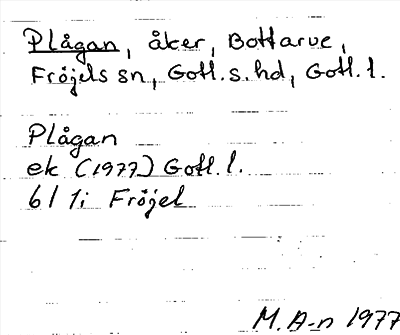 Plågan, åker, Bottarve,
Fröjels sn, Gotl. s. hd, Gotl. l.
Plågan
ek (1977) Gotl. l.
6 I 1i Fröjel
M. A-n 1977